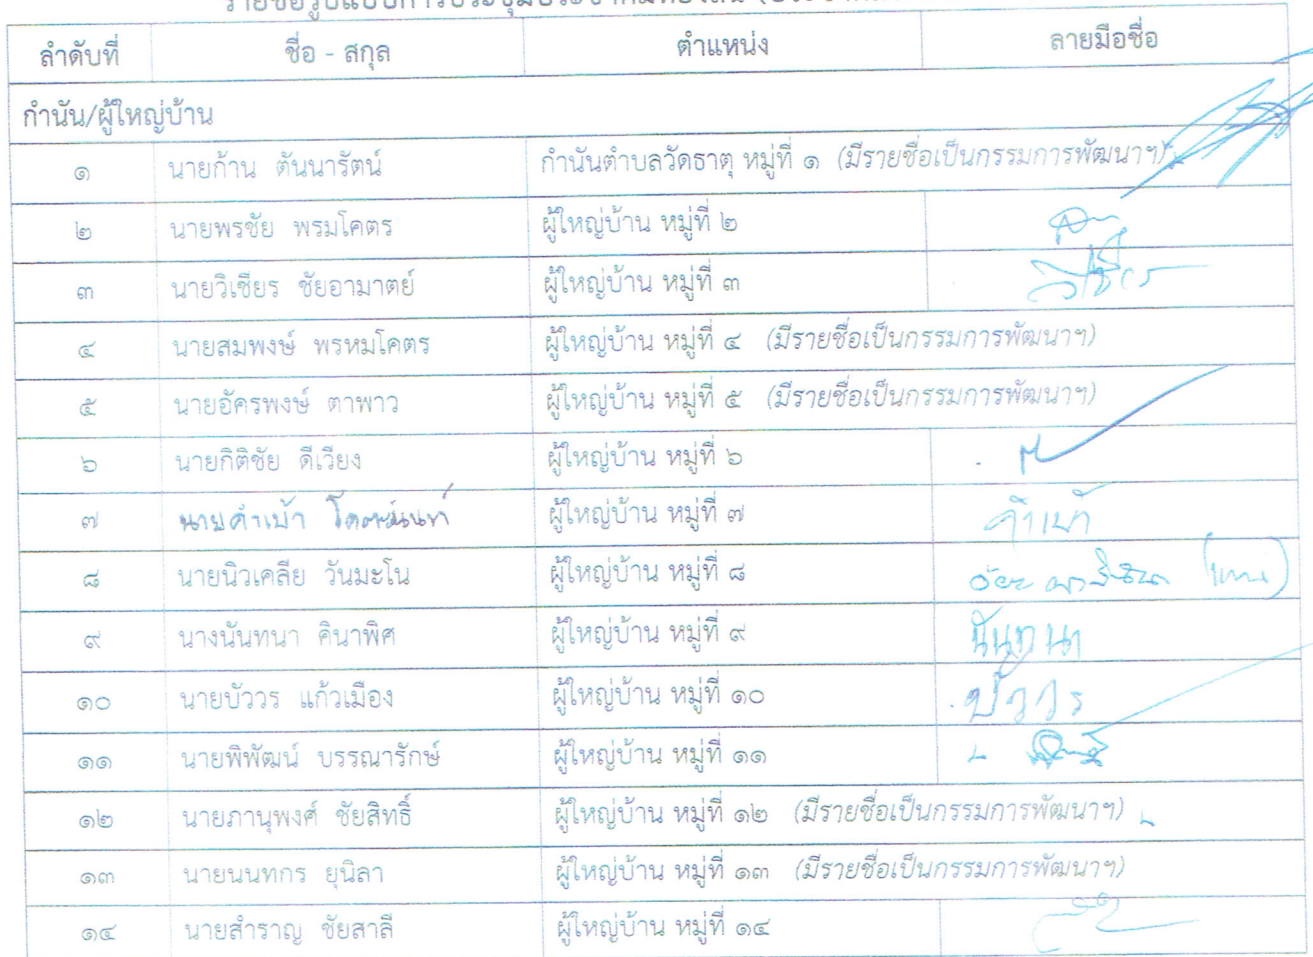 ลำดับที่ ชื่อ - สกุล ตำแหน่ง ลายมือชื่อ
กำนัน/ผู้ใหญ่บ้าน
๑ นายก้าน ตันนารัตน์ กำนันตำบลวัดธาตุ หมู่ที่ ๑ (มีรายชื่อเป็นกรรมการพัฒนาฯ)
๒ นายพรชัย พรมโคตร ผู้ใหญ่บ้าน หมู่ที่ ๒
๓ นายวิเชียร ชัยอามาตย์ ผู้ใหญ่บ้าน หมู่ที่ ๓
๔ นายสมพงษ์ พรหมโคตร ผู้ใหญ่บ้าน หมู่ที่ ๔ (มีรายชื่อเป็นกรรมการพัฒนาฯ)
๕ นายอัครพงษ์ ตาพาว ผู้ใหญ่บ้าน หมู่ที่ ๕ (มีรายชื่อเป็นกรรมการพัฒนาฯ)
๖ นายกิติชัย ดีเวียง ผู้ใหญ่บ้าน หมู่ที่ ๖
๗ นายคำเม้า ผู้ใหญ่บ้าน หมู่ที่ ๗ คำเม้า
๘ นายนิวเคลีย วันมะโน ผู้ใหญ่บ้าน หมู่ที่ ๘ (แทน)
๙ นางนันทนา คินาพิศ ผู้ใหญ่บ้าน หมู่ที่ ๙ นันทนา
๑๐ นายบัววร แก้วเมือง ผู้ใหญ่บ้าน หมู่ที่ ๑๐ บัววร
๑๑ นายพิพัฒน์ บรรณารักษ์ ผู้ใหญ่บ้าน หมู่ที่ ๑๑
๑๒ นายภานุพงศ์ ชัยสิทธิ์ ผู้ใหญ่บ้าน หมู่ที่ ๑๒ (มีรายชื่อเป็นกรรมการพัฒนาฯ)
๑๓ นายนนทกร ยุนิลา ผู้ใหญ่บ้าน หมู่ที่ ๑๓ (มีรายชื่อเป็นกรรมการพัฒนาฯ)
๑๔ นายสำราญ ชัยสาลี ผู้ใหญ่บ้าน หมู่ที่ ๑๔